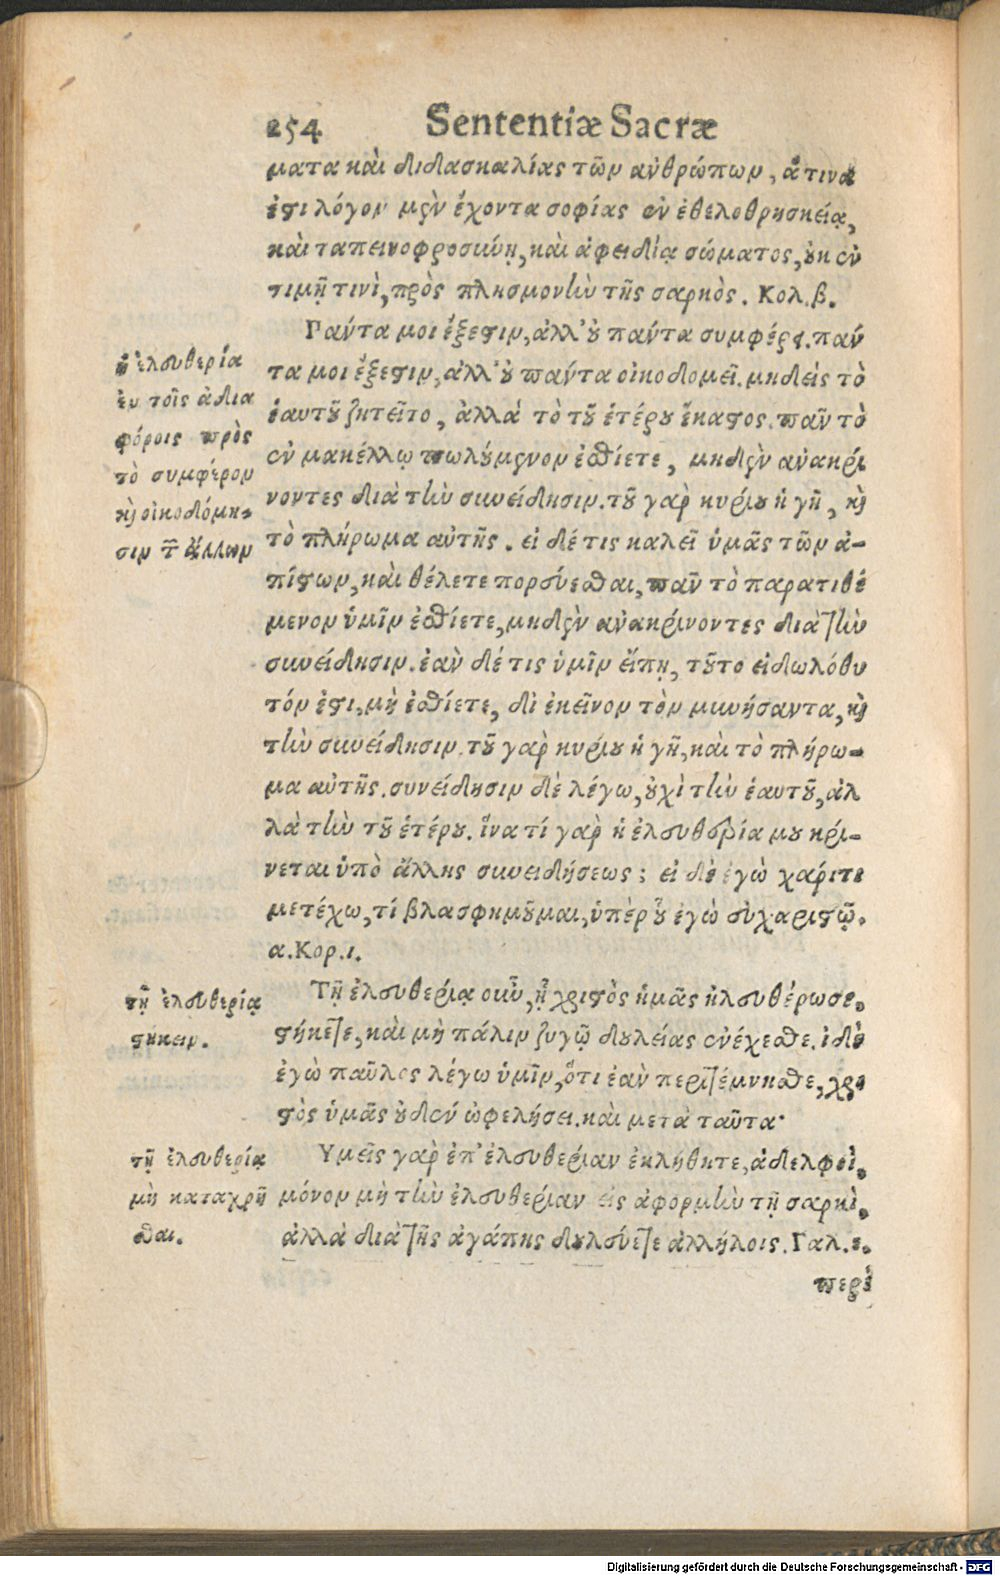 254 Sententiæ Sacræ
ματα καὶ διδασκαλίας τῶν ἀνθρώπων, ἅτινα
ἐστι λόγον μὲν ἔχοντα σοφίας ἐν ἐθελοθρησκείᾳ,
καὶ ταπεινοφροσύνῃ, καὶ ἀφειδίᾳ σώματος, οὐκ ἐν
τιμῇ τινὶ, πρὸς πλησμονὴν τῆς σαρκὸς. Κολ. β.
Γάντα μοι ἔξεστιν, ἀλλ' οὐ πάντα συμφέρει. πάν
τα μοι ἔξεστιν, ἀλλ' οὐ πάντα οἰκοδομεῖ. μηδεὶς τὸ
ἑαυτοῦ ζητεῖτο, ἀλλὰ τὸ τοῦ ἑτέρου ἕκαστος. πᾶν τὸ
ἐν μακέλλῳ πωλούμενον ἐσθίετε, μηδὲν ἀνακρί
νοντες διὰ τὴν συνείδησιν. τοῦ γὰρ κυρίου ἡ γῆ, καὶ
τὸ πλήρωμα αὐτῆς. εἰ δέ τις καλεῖ ὑμᾶς τῶν ἀ-
πίστων, καὶ θέλετε πορεύεσθαι, πᾶν τὸ παρατιθέ
μενον ὑμῖν ἐσθίετε, μηδὲν ἀνακρίνοντες διὰ τὴν
συνείδησιν. ἐὰν δέ τις ὑμῖν εἴπῃ, τοῦτο εἰδωλόθυ
τόν ἐστι, μὴ ἐσθίετε, δι' ἐκεῖνον τὸν μηνύσαντα, καὶ
τὴν συνείδησιν. τοῦ γὰρ κυρίου ἡ γῆ, καὶ τὸ πλήρω-
μα αὐτῆς. συνείδησιν δὲ λέγω, οὐχὶ τὴν ἑαυτοῦ, ἀλ
λὰ τὴν τοῦ ἑτέρου. ἵνα τί γὰρ ἡ ἐλευθερία μου κρί-
νεται ὑπὸ ἄλλης συνειδήσεως; εἰ δὲ ἐγὼ χάριτι
μετέχω, τί βλασφημοῦμαι, ὑπὲρ οὗ ἐγὼ εὐχαριστῶ.
α. Κορ. ι.
Τῇ ἐλευθερίᾳ οὖν, ᾗ χριστὸς ἡμᾶς ἠλευθέρωσε,
στήκετε, καὶ μὴ πάλιν ζυγῷ δουλείας ἐνέχεσθε. ἰδὲ
ἐγὼ παῦλος λέγω ὑμῖν, ὅτι ἐὰν περιτέμνησθε, χρι
στὸς ὑμᾶς οὐδὲν ὠφελήσει. καὶ μετὰ ταῦτα·
Υμεῖς γὰρ ἐπ' ἐλευθερίαν ἐκλήθητε, ἀδελφοὶ,
μόνον μὴ τὴν ἐλευθερίαν εἰς ἀφορμὴν τῇ σαρκὶ,
ἀλλὰ διὰ τῆς ἀγάπης δουλεύετε ἀλλήλοις. Γαλ. ε.
περὶ
ἡ ἐλευθερία
ἐν τοῖς ἀδια
φόροις πρὸς
τὸ συμφέρον
καὶ οἰκοδόμη-
σιν τῶν ἄλλων
τῇ ἐλευθερίᾳ
στήκειν.
τῇ ἐλευθερίᾳ
μὴ καταχρῆ
σθαι.
Digitalisierung gefördert durch die Deutsche Forschungsgemeinschaft - DFG